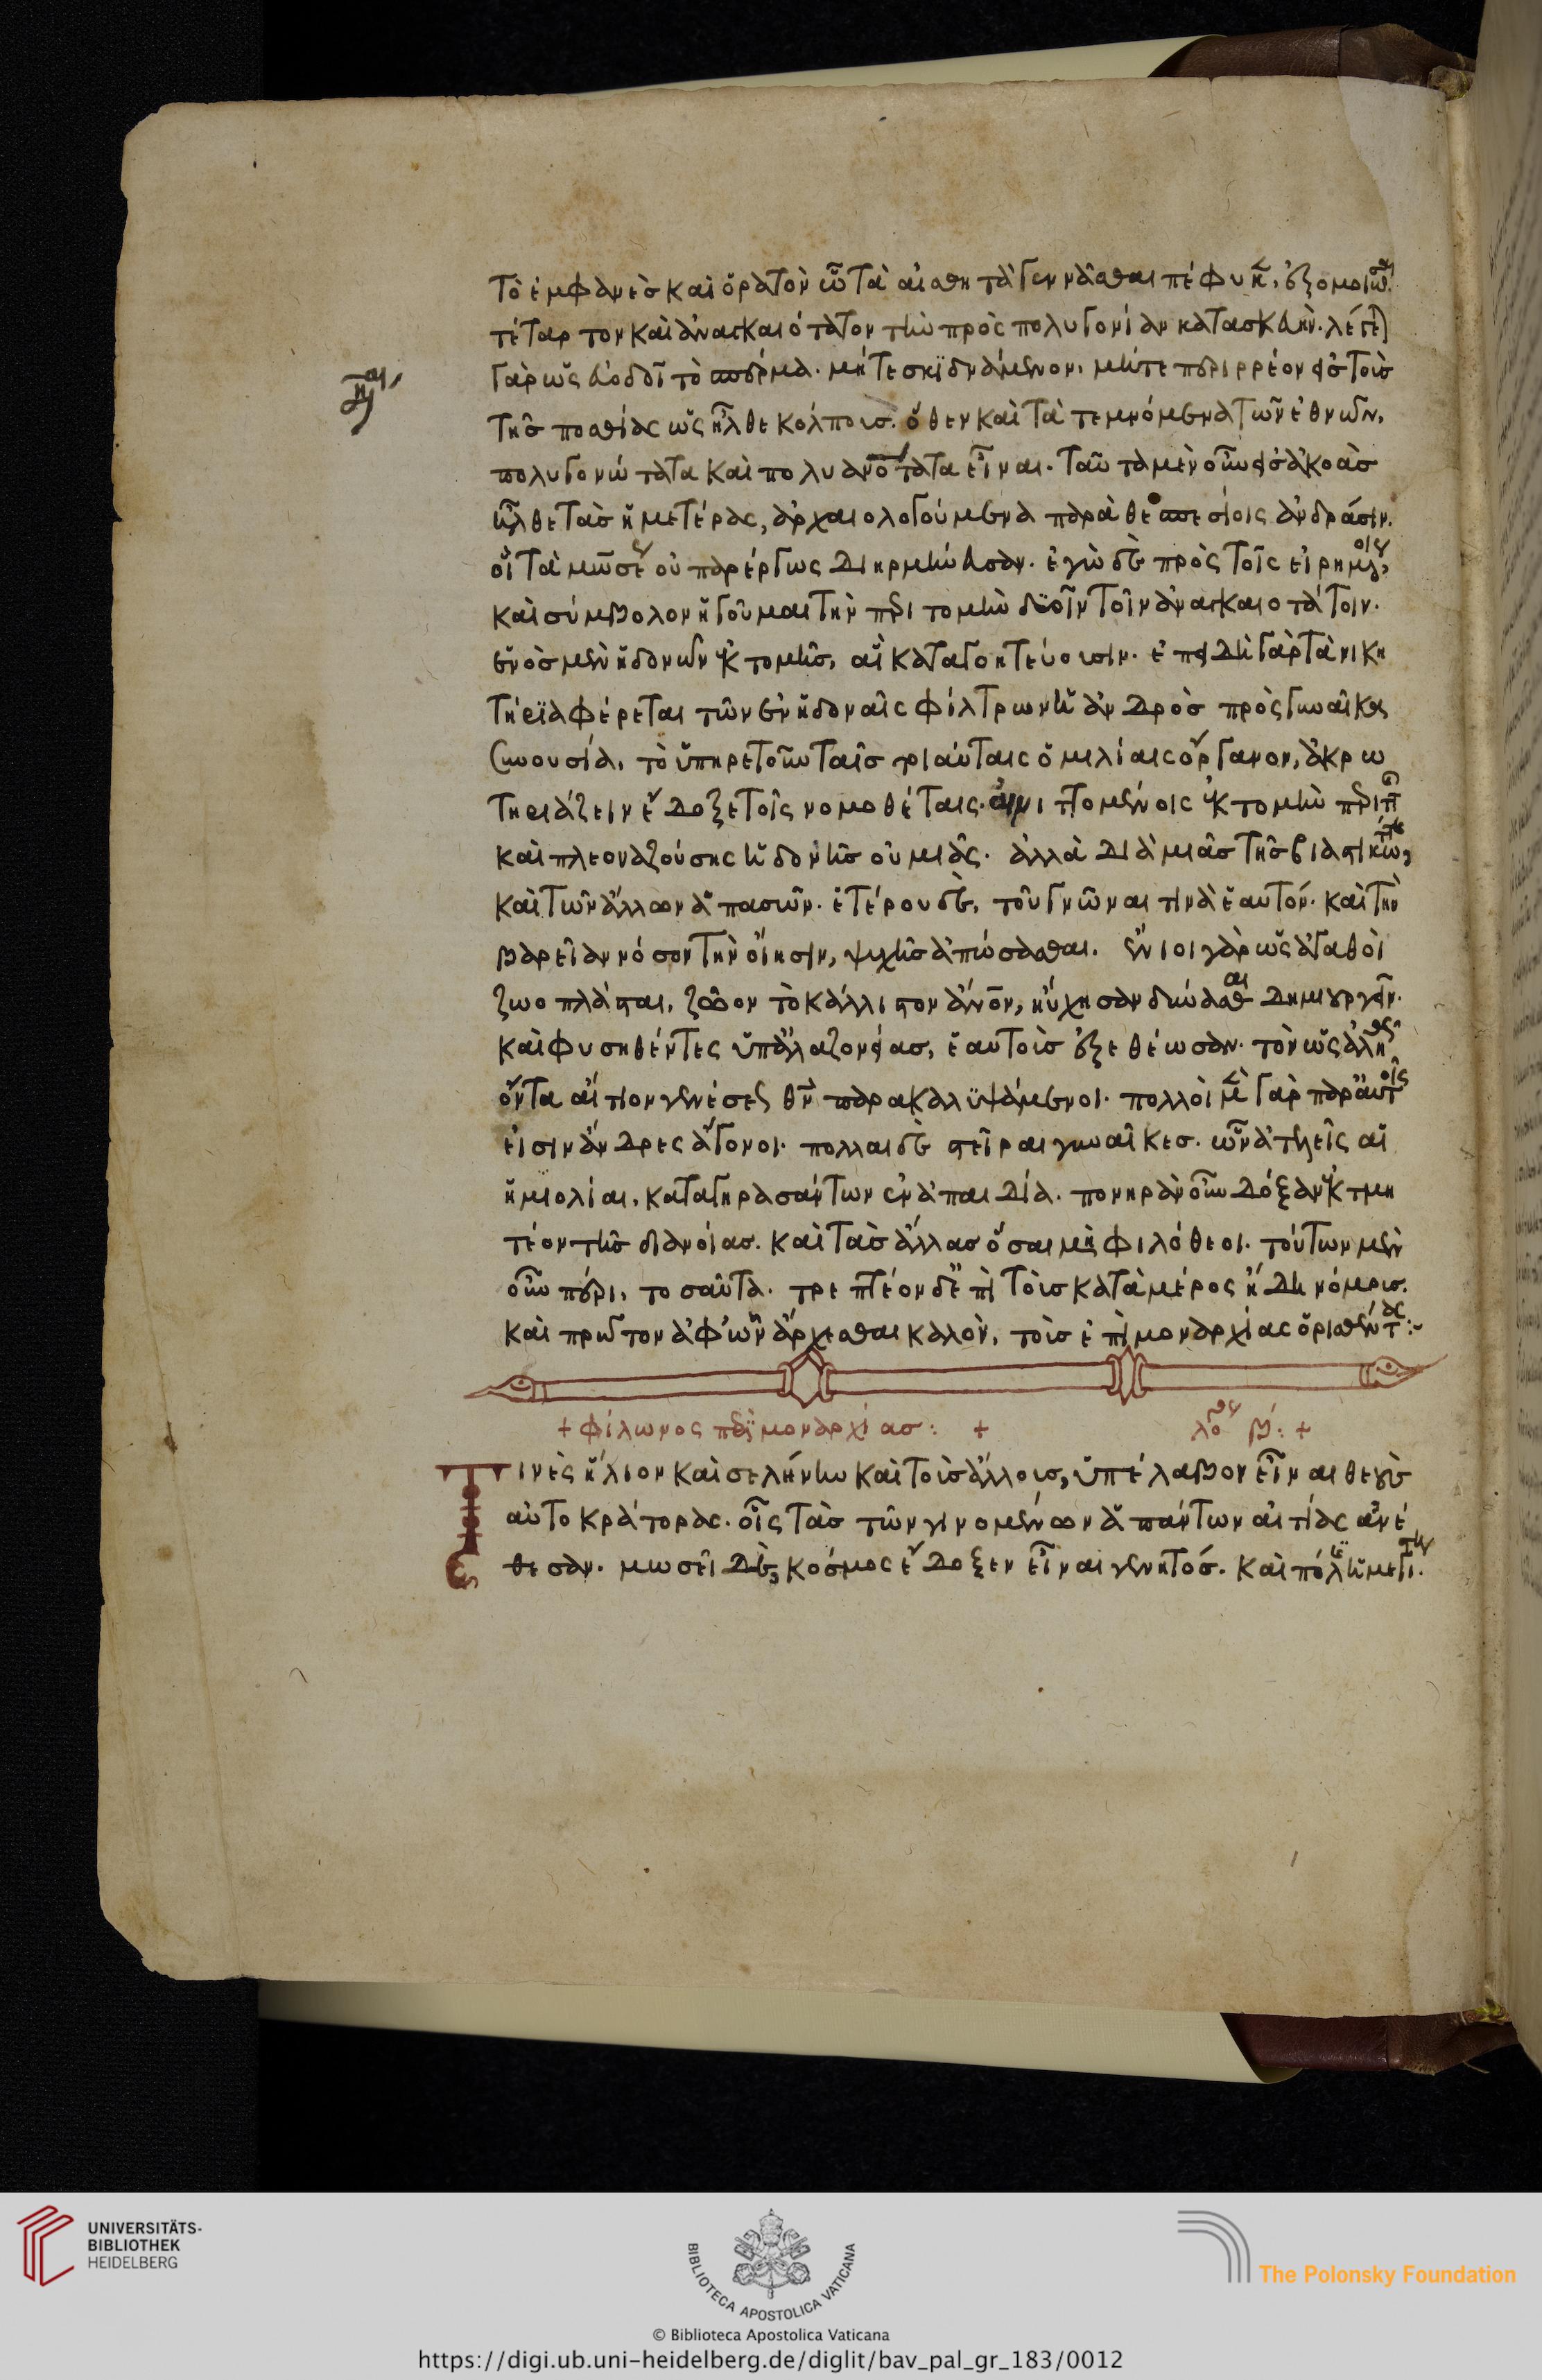 τὸ ἐμφανὲς καὶ ὁρατὸν ὧ τὰ αἰσθητὰ γεννᾶσθαι πέφυκ(εν), ἐξομοίωσ(ιν).
τέταρτον καὶ ἀναγκαιότατον τὴν πρὸς πολυγονίαν κατασκευήν. λέγετ(αι)
γὰρ ὡς εὐοδεῖ τὸ σπέρμα. μήτε σκιδνάμενον, μήτε περιρρέον εἰς τοὺς
τῆς ποσθίας ὡς ἦλθε κόλποις. ὅθεν καὶ τὰ τεμνόμενα τῶν ἐθνῶν,
πολυγονώτατα καὶ πολυανότατα εἶναι. ταῦτα μὲν οὖν εἰς ἀκοὰς
ἦλθε τὰς ἡμετέρας, ἀρχαιολογούμενα παρὰ θεσπεσίοις ἀνδράσιν.
οἳ τὰ μωσέως οὐ παρέργως διηρμήνευσαν. ἐγὼ δὲ πρὸς τοῖς εἰρημένοις,
καὶ σύμβολον ἡγοῦμαι τὴν περιτομὴν δυοῖν τοῖν ἀναγκαιοτάτοιν.
ἑνὸς μὲν ἡδονῶν ἐκτομῆς, αἳ καταγοητεύουσιν. ἐπειδὴ γὰρ τὰ νικη
τήρια φέρεται τῶν ἐν ἡδοναῖς φίλτρων ἡ ἀνδρὸς πρὸς γυναῖκας
συνουσία, τὸ ὑπηρετοῦν ταῖς τοιαύταις ὁμιλίαις ὄργανον, ἀκρω
τηριάζειν ἔδοξε τοῖς νομοθέταις. αἰνιττομένοις ἐκτομὴν περιττ(ῆς)
καὶ πλεοναζούσης ἡδονῆς οὐ μιᾶς. ἀλλὰ διὰ μιᾶς τῆς βιαστικωτ(ά)τ(ης),
καὶ τῶν ἄλλων ἁπασῶν. ἑτέρου δὲ, τοῦ γνῶναί τινα ἑαυτόν. καὶ τὴν
βαρεῖαν νόσον τὴν οἴησιν, ψυχῆς ἀπώσασθαι. ἔνιοι γὰρ ὡς ἀγαθοὶ
ζωοπλάσται, ζῶον τὸ κάλλιστον ἄνον, ηὔχησαν δύνασθαι δημιουργεῖν.
καὶ φυσηθέντες ὑπ' ἀλαζονείας, ἑαυτοὺς ἐξεθέωσαν. τὸν ὡς ἀληθῶς
ὄντα αἴτιον γενέσεως θν παρακαλυψάμενοι. πολλοὶ μὲν γὰρ παρ' αὐτοῖς
εἰσιν ἄνδρες ἄγονοι. πολλαι δὲ στεῖραι γυναῖκες. ὧν ἀτελεῖς αἱ
ὁμιλίαι, καταγηρασάντων ἐν ἀπαιδία. πονηρὰν οὖν δόξαν ἐκτμη
τέον τῆς διανοίας. καὶ τὰς ἄλλας ὅσαι μὴ φιλόθεοι. τούτων μὲν
οὖν πέρι, τοσαῦτα. τρεπτέον δ' ἐπὶ τοὺς κατὰ μέρος ἤδη νόμους.
καὶ πρῶτον ἀφ' ὧν ἄρχεσθαι καλὸν, τοὺς ἐπὶ μοναρχίας ὁρισθέντας:~
+ φίλωνος περὶ μοναρχίας: + λόγος β': +
Τινὲς ἥλιον καὶ σελήνην καὶ τοὺς ἄλλους, ὑπέλαβον εἶναι θεοὺς
αὐτοκράτορας. οἷς τὰς τῶν γινομένων ἁπάντων αἰτίας ἀνέ
θεσαν. μωσεῖ δὲ, κόσμος ἔδοξεν εἶναι γενητός. καὶ πόλις ἡ μεγίστη.
UNIVERSITÄTS-
BIBLIOTHEK
HEIDELBERG
BIBLIOTECA APOSTOLICA VATICANA
The Polonsky Foundation
© Biblioteca Apostolica Vaticana
https://digi.ub.uni-heidelberg.de/diglit/bav_pal_gr_183/0012